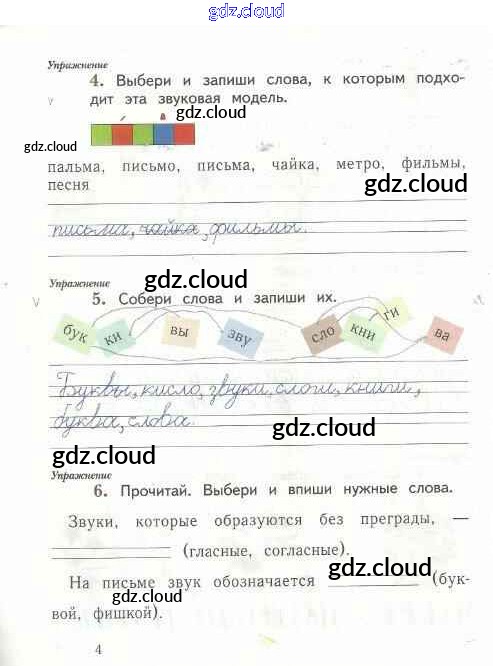 gdz.cloud
Упражнение
4. Выбери и запиши слова, к которым подхо-
дит эта звуковая модель.
gdz.cloud
gdz.cloud
пальма, письмо, письма, чайка, метро, фильмы,
песня
gdz.cloud
письма, чайка, фильмы.
gdz.cloud
Упражнение
5. Собери слова и запиши их.
бук ки вы зву сло кни ги ва
Буквы, кисло, звуки, слоги, книги,
буква, слова.
gdz.cloud
gdz.cloud
Упражнение
6. Прочитай. Выбери и впиши нужные слова.
Звуки, которые образуются без преграды, —
(гласные, согласные).
gdz.cloud
На письме звук обозначается (бук-
gdz.cloud
вой, фишкой).
4
gdz.cloud